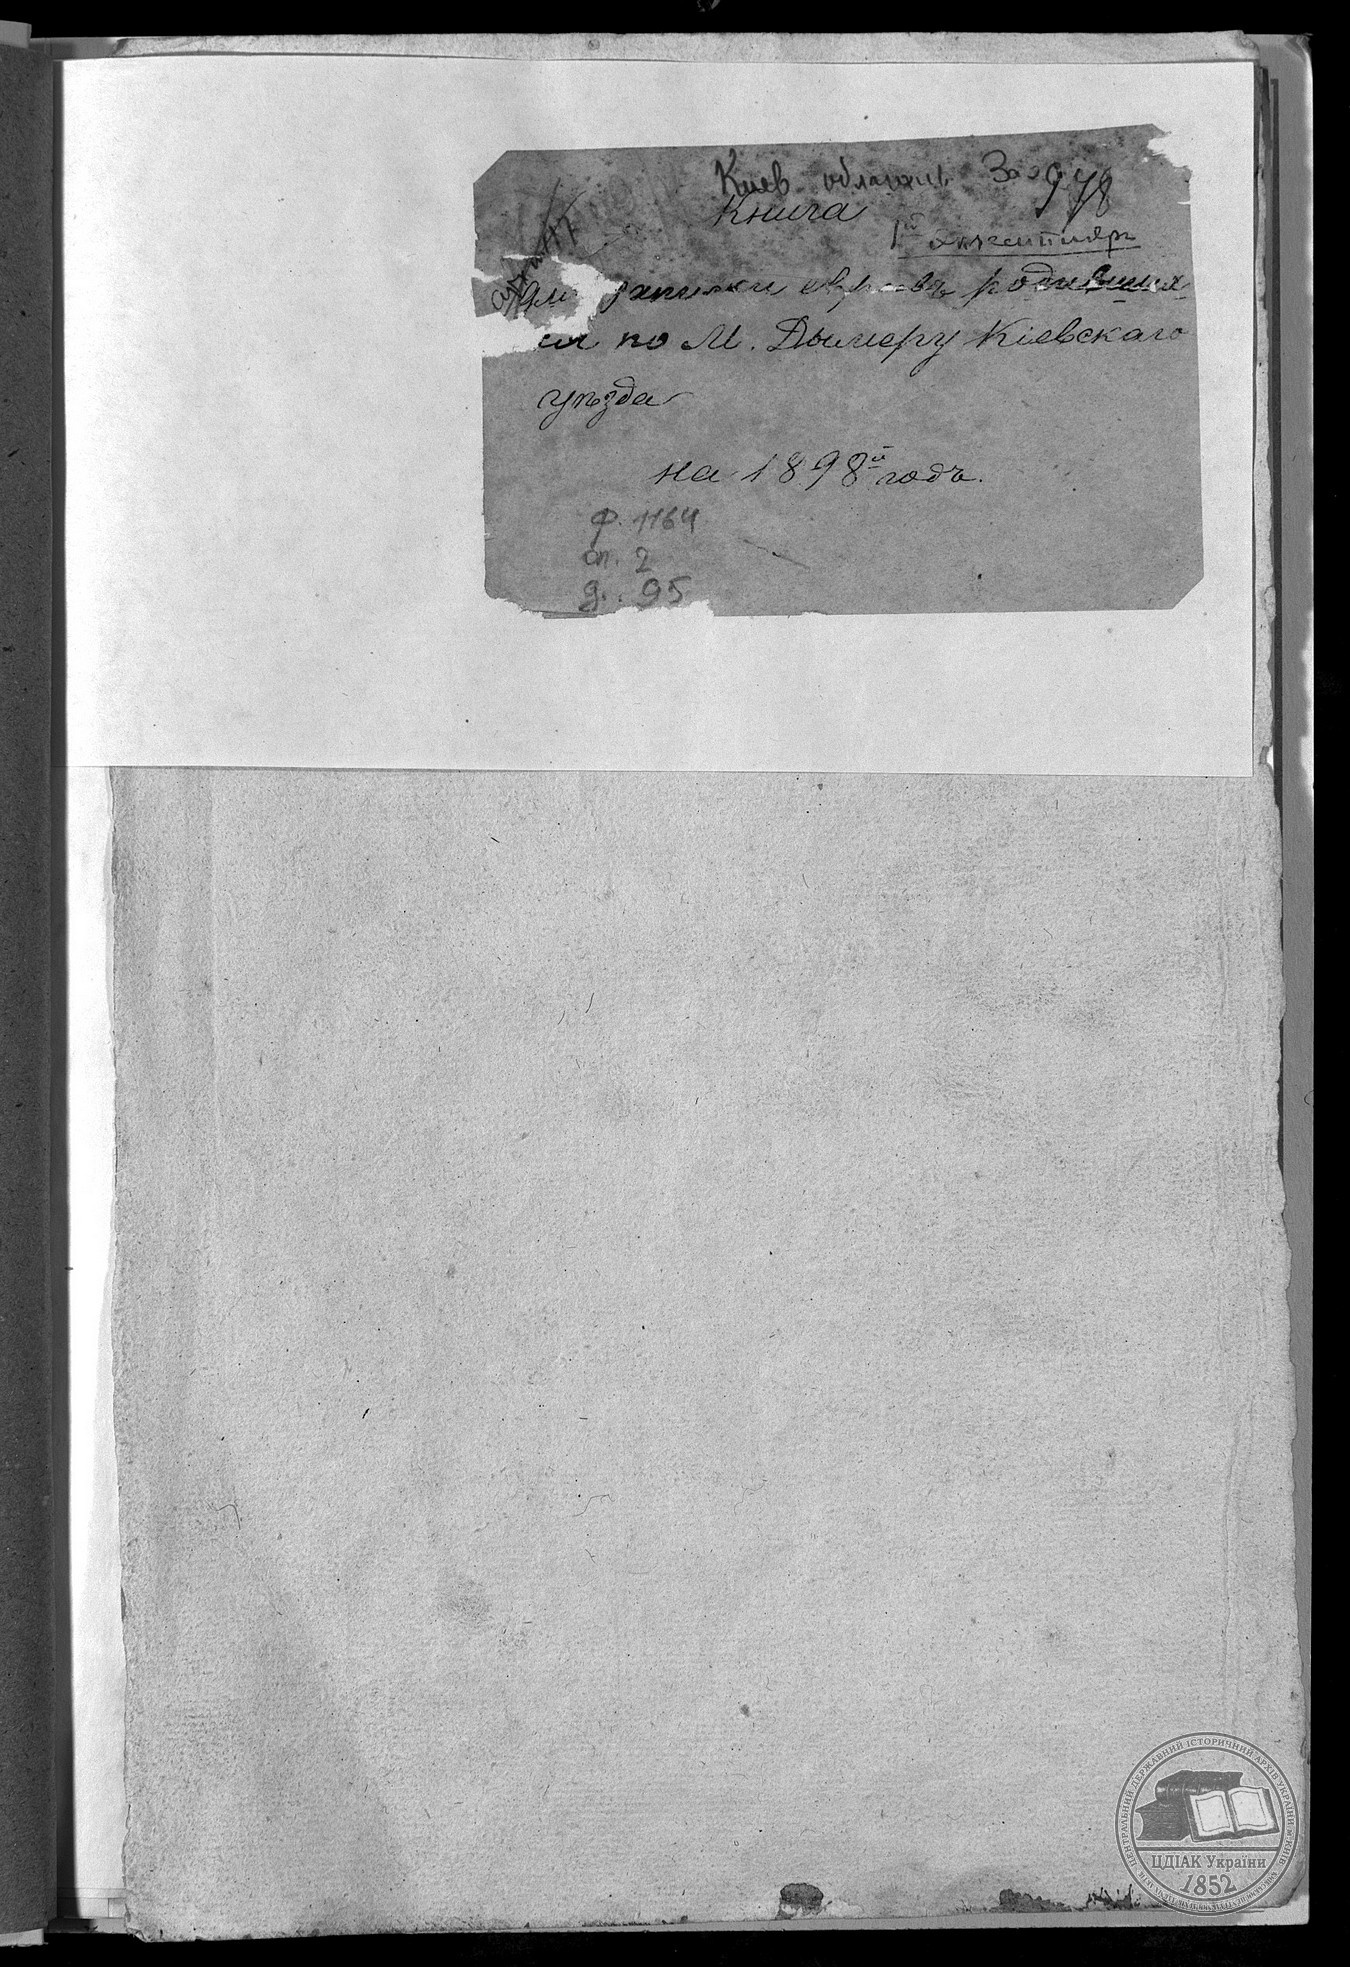 Киев. областн. Загс 978
Книга
1й экземпляр
для записки евреевъ родивших
ся по М. Дымеру Кіевскаго
уѣзда
на 1898й годъ.
ф. 1164
оп. 2
д. 95
ЦЕНТРАЛЬНИЙ ДЕРЖАВНИЙ ІСТОРИЧНИЙ АРХІВ УКРАЇНИ М. КИЇВ
ЦДІАК України
1852